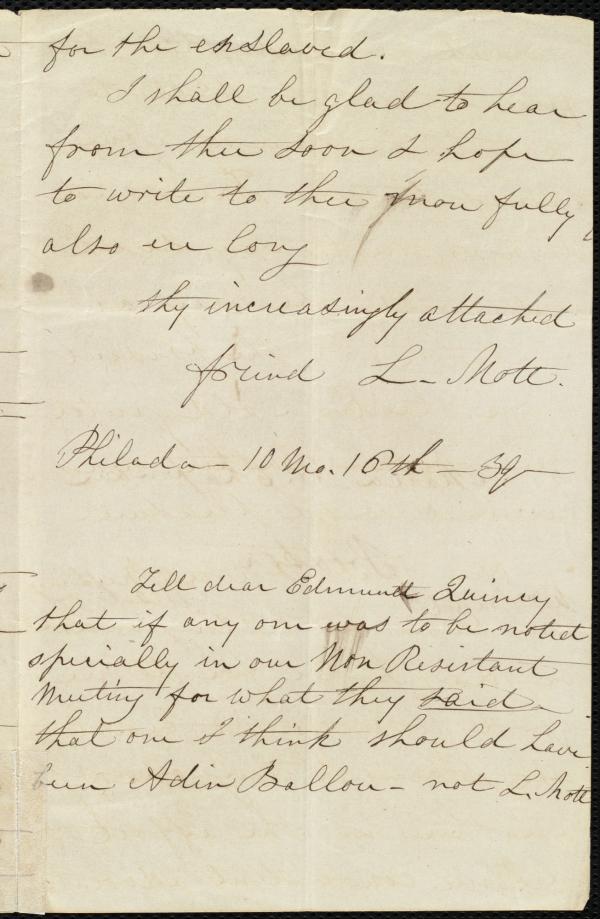 for the enslaved.
I shall be glad to hear
from thee soon & hope
to write to thee more fully
also ere long
thy increasingly attached
friend L. Mott.
Philada — 10 Mo. 16th — 39 —
Tell dear Edmund Quincy
that if any one was to be noted
specially in our Non Resistant
Meeting for what they said —
that one I think should have
been Adin Ballou — not L. Mott